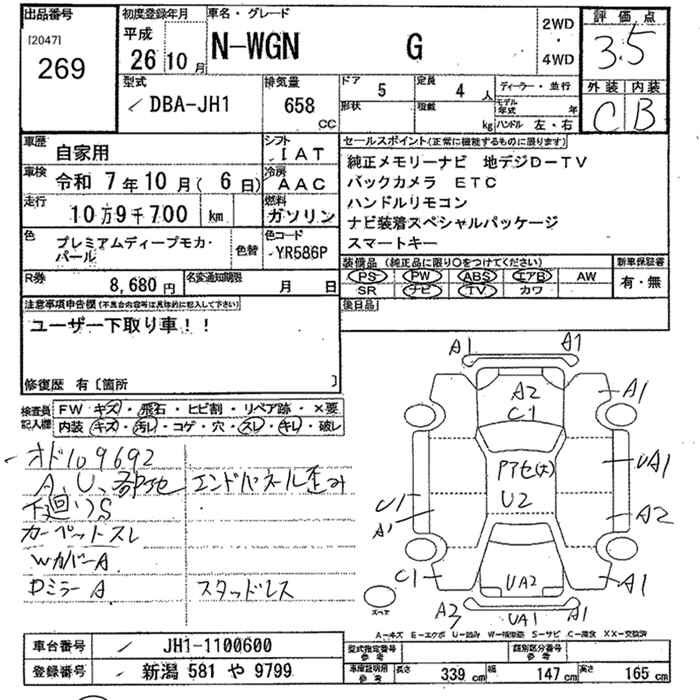 出品番号
[2047]
269
初度登録年月
平成
26 10 月
車名・グレード
N-WGN G
2WD
・
4WD
評価点
3.5
外装 内装
C B
型式
DBA-JH1
排気量
658 CC
ドア
5
形状
定員
4 人
積載
kg
ディーラー・並行
モデル年式 年
ハンドル 左・右
車歴
自家用
シフト
IAT
車検
令和 7年 10月( 6日)
冷房
AAC
走行
10万9千700 km
燃料
ガソリン
色
プレミアムディープモカ・パール
色替
色コード
YR586P
R券
8,680 円
名変通知期限
月 日
セールスポイント(正常に機能するものに限ります)
純正メモリーナビ 地デジD-TV
バックカメラ ETC
ハンドルリモコン
ナビ装着スペシャルパッケージ
スマートキー
装備品(純正品に限り○をつけてください)
PS PW ABS エアB AW
SR ナビ TV カワ
新車保証書
有・無
後日品
注意事項申告欄(不具合内容等は具体的に記入して下さい)
ユーザー下取り車!!
修復歴 有〔箇所 〕
検査員記入欄
FW キズ・飛石・ヒビ割・リペア跡・×要
内装 キズ・汚レ・コゲ・穴・スレ・キレ・破レ
オド109692
A、U、部地 エンドパネル歪み
下廻りS
カーペットスレ
WカバーA
DミラーA スタッドレス
A1 A1
A2
C1
A1
アアセ(大)
U2
UA1
A2
U1
A1
C1
UA2
A1
A2
UA1
A1
スペア
A-キズ E-エクボ U-凹み W-補修跡 S-サビ C-腐食 XX-交換済
車台番号
JH1-1100600
登録番号
新潟 581 や 9799
型式指定番号 参考
類別区分番号 参考
車庫証明用 参考
長さ 339 cm 幅 147 cm 高さ 165 cm